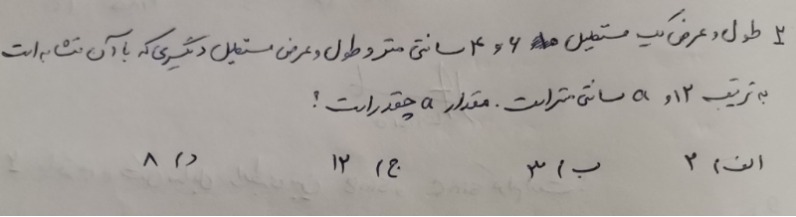 ۲ طول و عرض یک مستطیل ۶ و ۴ سانتی متر و طول و عرض مستطیل دیگری که با آن متشابه است
به ترتیب ۱۲ و a سانتی متر است. مقدار a چقدر است؟
الف) ۲ ب) ۳ ج) ۱۲ د) ۸